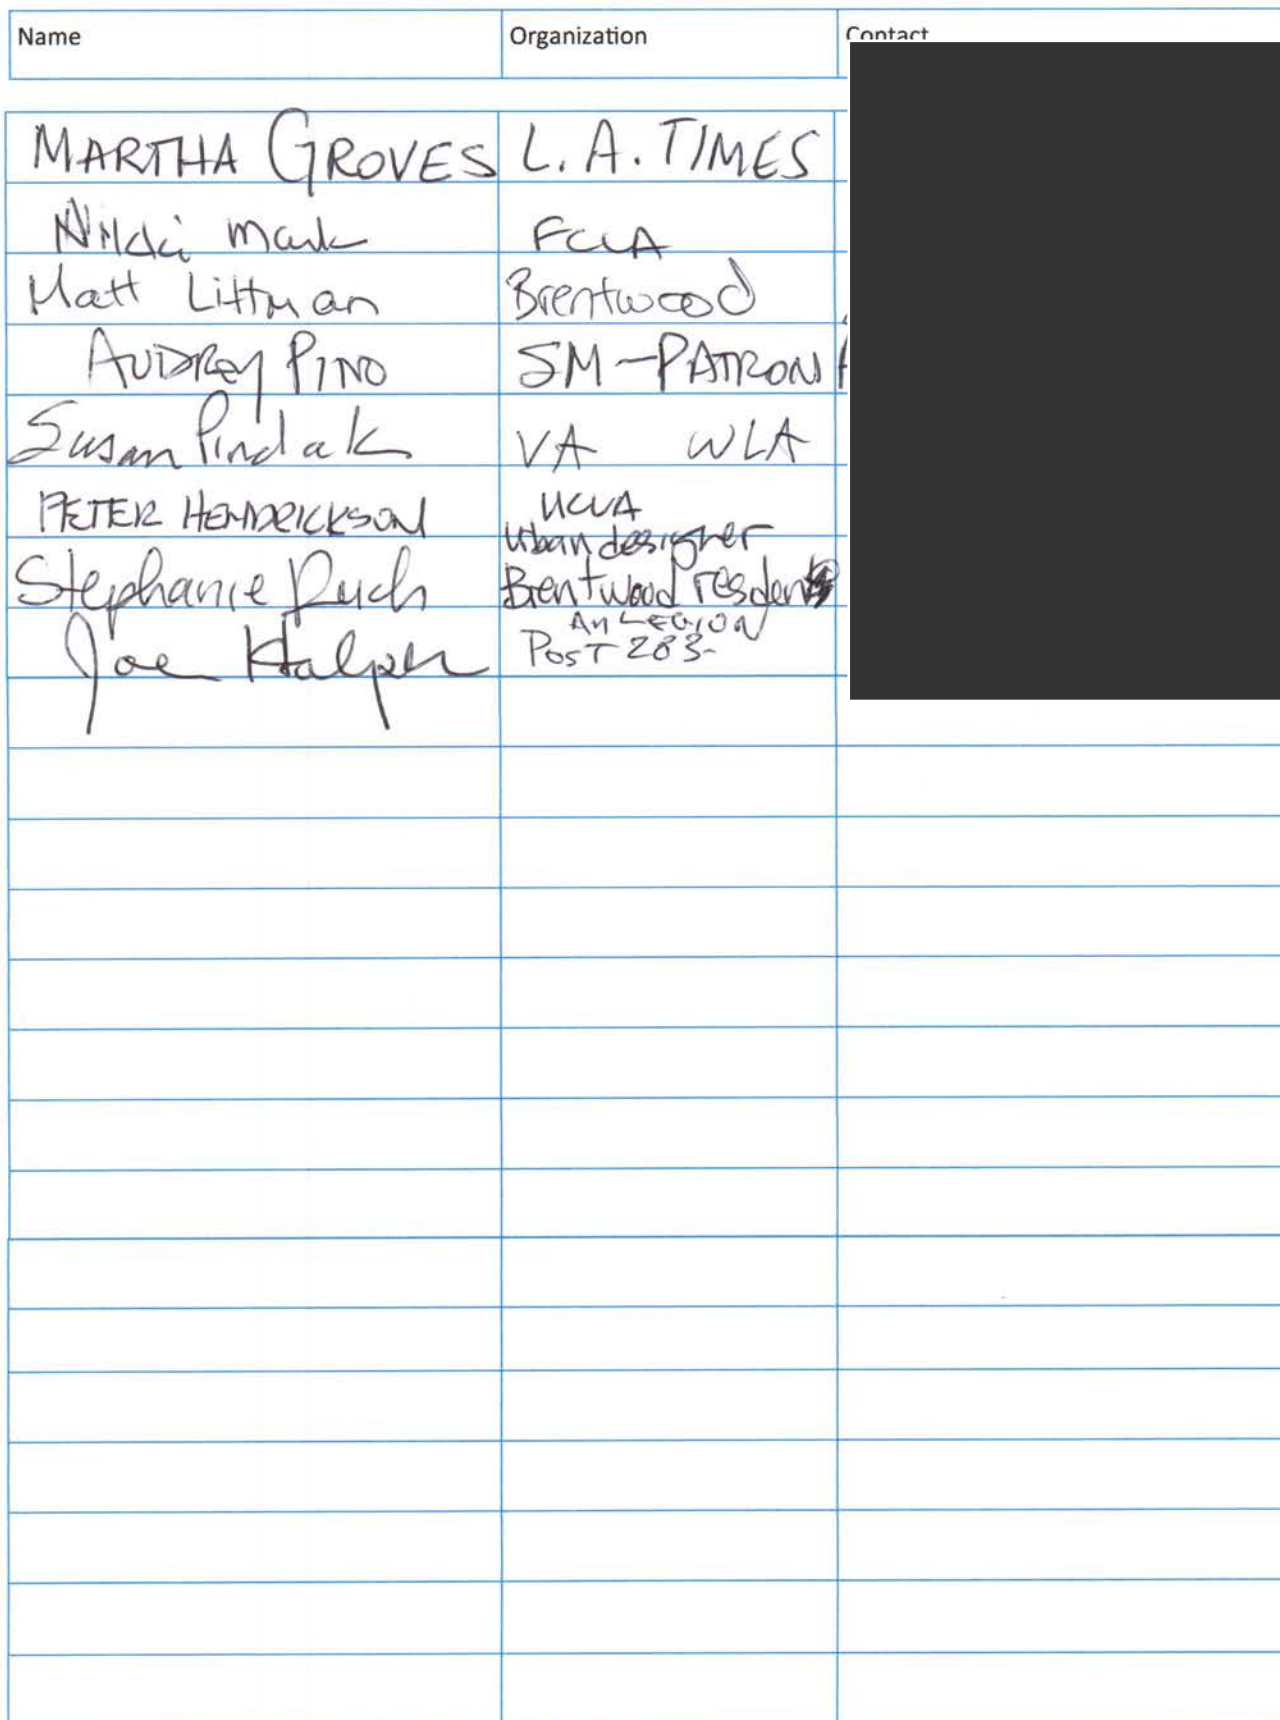 Name Organization Contact
MARTHA GROVES L.A. TIMES
Nikki Mark FCLA
Matt Littman Brentwood
AUDREY PINO SM-PATRON
Susan Pindak VA WLA
PETER HENDRICKSON UCLA
Urban designer
Stephanie Brentwood resident
AM LEGION
Joe Halper Post 283